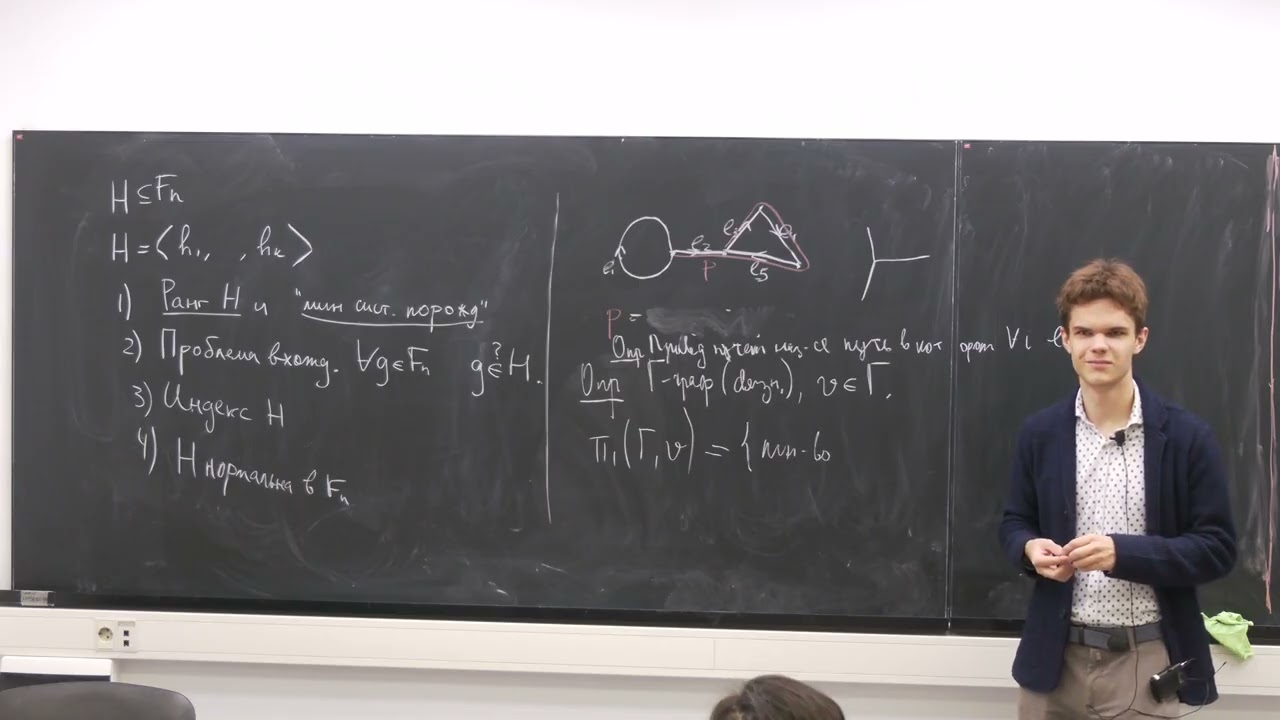 H ⊆ Fn
H = <h₁, , hк>
1) Ранг H и "мин сист. порожд"
2) Проблема вхожд. ∀g∈Fn g ∈? H.
3) Индекс H
4) H нормальна в Fn
e₁ e₂ e₃ e₄ e₅
p
p =
Опр Привед путём наз-ся путь в кот ∀i e
Опр Γ-граф (связн.), v∈Γ.
π₁(Γ,v) = { мн-во